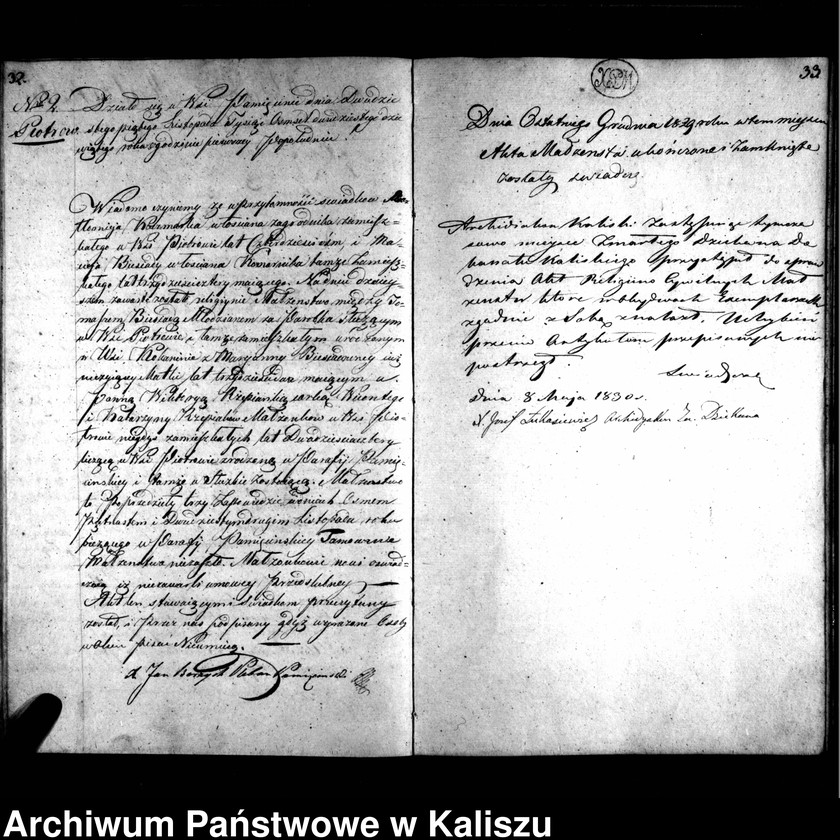 32.
No 2.
Piotrow.
Działo się w Wsi Pamięcinie dnia Dwudzie
stego piątego Listopada tysiąc Osmset dwudziestego dzie
wiątego roku o godzinie pierwszy Popołudniu.
Wiadomo czynimy że w przytomności swiadków
Kaczmarka włosciana zagrodnika zamiesz-
kałego w Wsi Piotrowie lat Czterdzieści ośm, i Ma-
cieja Biesiady włosciana Komornika tamże zamiesz-
kałego lat trzydzieści cztery maiącego. Na dniu dzisiey
szem zawarte zostało religiyne Małżenstwo między To-
maszem Biesiadą Młodzianem za Parobka służącym
w Wsi Piotrowie i tamże zamieszkałym urodzonym
w Wsi z Maryanny Biesiadowney iuż
nieżyiącey Matki lat trzydzieści maiącym a
Panną Wiktoryą córką
i Katarzyny Małżonków w Wsi Pio-
trowie niegdyś zamieszkałych lat Dwadzieścia cztery
liczącą w Wsi Piotrowie zrodzoną w Parafii Pamię-
cinskiey i tamże w Służbie zostaiącą. Małżenstwo
to Poprzedziły trzy Zapowiedzie w dniach Osmem
Piętnastem i Dwudziestymdrugim Listopada roku
bieżącego w Parafii Pamięcinskiey Tamowanie
Małżenstwa niezaszło. Małżonkowie nowi oswiad-
czaią iż niezawarli umowey Przedslubney
Akt ten stawaiącym i swiadkom przeczytany
został, i Przez nas podpisany gdyż wyrażone Osoby
w Akcie pisać Nieumieią.
X Jan Pleban Pamięcinski
33
Dnia Ostatniego Grudnia 1829 roku w tem mieyscu
Akta Małżenstw ukończone i Zamknięte
zostały zwiadcze.
Archidiakon Kaliski Zastępuiąc tymcza
sowo mieysce Zmarłego Dziekana De
kanatu Kaliskiego przystąpił do spraw
dzenia Akt Religiino Cywilnych Mał
zenstw które w obydwoch Exemplarzach
zgodnie z Sobą znalazł, Uchybień
przeciw Artykułom przepisanych nie
postrzegł.
Swiadczę
dnia 8 Maja 1830 r.
X. Josef Łukasiewicz Archidyakon Za. Dziekana
Archiwum Państwowe w Kaliszu